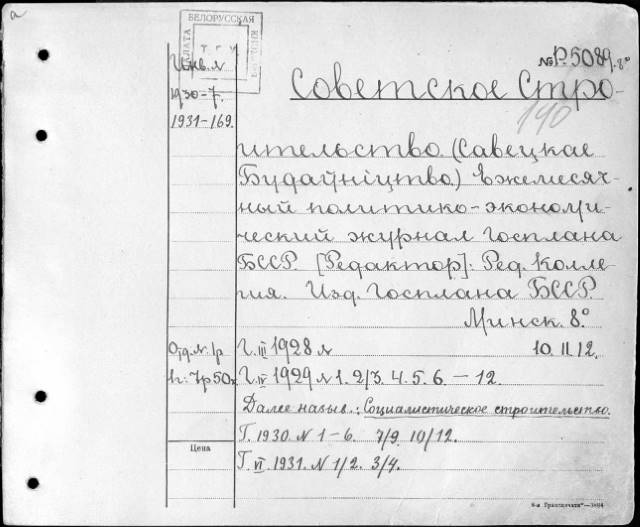 а
БЕЛОРУССКАЯ
№P5089, 8°
Инв. №
1930-7.
1931-169.
Советское Стро-
190
ительство. (Савецкае
Будаўніцтво.) Ежемесяч-
ный политико-экономи-
ческий журнал Госплана
БССР. [Редактор]: Ред. Колле-
гия. Изд. Госплана БССР.
Минск. 8°.
Г. III 1928 № 10. 11. 12.
Отд. №: 1р
Г. IV 1929 № 1. 2/3. 4. 5. 6. — 12.
Далее назыв.: Социалистическое строительство.
Г. 1930. № 1-6. 7/9. 10/12.
Цена
Г. VI 1931. № 1/2. 3/4.